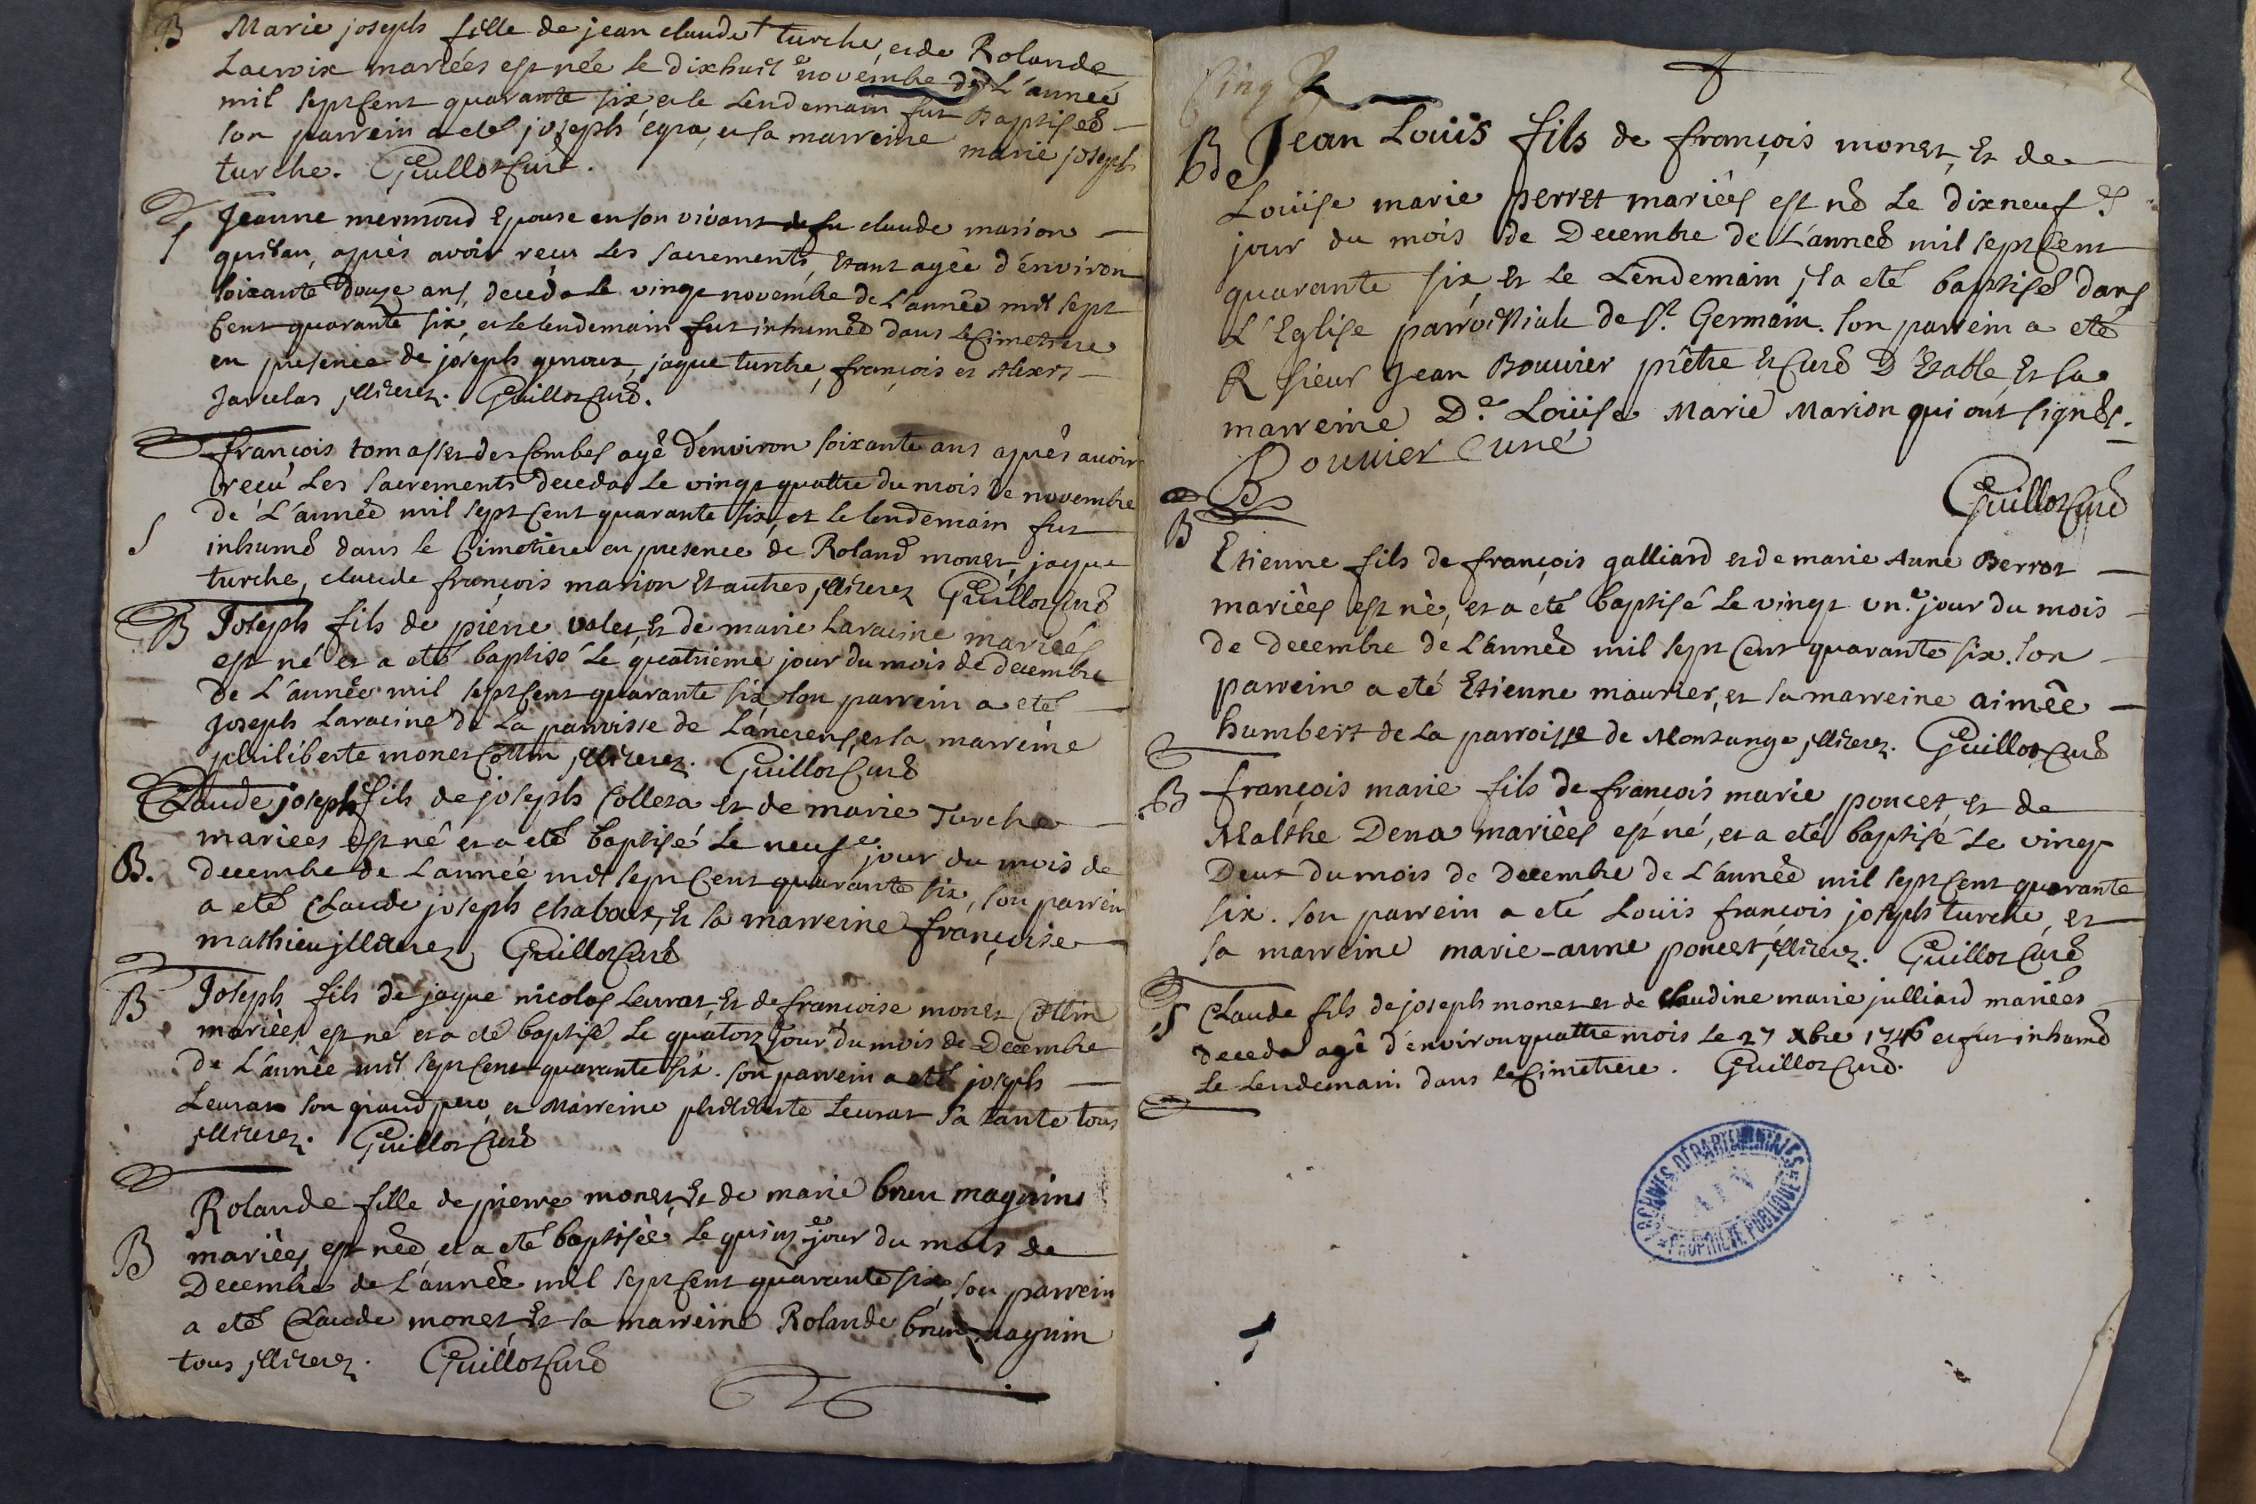 B Marie joseph fille de jean claude turche, et de Rolande
Lacroix mariées est née le dixhuit e novembre de L'année
mil sept Cent quarante six et le Lendemain fut Baptiseé
son parrein a eté joseph egra, et sa marreine marie joseph
turche. Guillot Curé.
Jeanne mermoud Epouse en son vivant de fu claude marion
S quilan, après avoir reçu Les sacrements, Etant agée d'environ
soixante Douze ans, deceda Le vingt novembre de L'année mil sept
Cent quarante six, et le lendemain fut inhumée dans Le Cimetiere
en presence de joseph genoux, jaque turche, françois et Alexis
Jarcelas jllitérez. Guillot Curé.
françois tomasset des Combes agé d'environ soixante ans après avoir
reçu Les sacrements deceda Le vingt quattre du mois de novembre
de L'année mil sept Cent quarante six, et le lendemain fut
S inhumé dans le Cimetiere en presence de Roland monet, jaque
turche, claude françois marion Et autres jllitérez Guillot Curé
B Joseph fils de piérre valet, Et de marie Laracine mariées
est né et a eté baptisé Le quatrieme jour du mois de decembre
de L'année mil sept Cent quarante six, son parrein a eté
joseph Laracine de La parroisse de Lancrens, et sa marreine
philiberte monet Cottin jllitérez. Guillot Curé
Claude joseph fils de joseph Colleta et de marie Turche
mariees est né et a eté baptisé Le neuf e. jour du mois de
B. decembre de L'année mil sept Cent quarante six, son parrein
a eté Claude joseph chabout, Et sa marreine françoise
mathieu jllitérez Guillot Curé
B Joseph fils de jaque nicolas Leurat, Et de françoise monet Cottin
mariées est né et a eté baptisé Le quatorz Jour du mois de Decembre
de L'année mil sept Cent quarante six. son parrein a eté joseph
Leurat son grand pere, et Marreine philiberte Leurat sa tante tous
jllitérez. Guillot Curé
Rolande fille de pierre monet, Et de marie brun magnin
B mariées est née et a eté baptisée Le quinz e. jour du mois de
Decembre de L'année mil sept Cent quarante six, son parrein
a eté Claude monet, Et sa marreine Rolande brun magnin
tous jllitérez. Guillot Curé
Cinq
B Jean Loüis fils de françois monet, Et de
Loüise marie perret mariées est né Le dixneuf e
jour du mois de Decembre de L'année mil sept Cent
quarante six, Et Le Lendemain jl a eté baptisé dans
L'Eglise parroissiale de St. Germain. son parrein a eté
R sieur Jean Bouvier prêtre Et Curé D'Etable Et sa
marreine De. Loüise Marie Marion qui ont signés.
Bouvier Curé
Guillot Curé
B Etienne fils de françois galliard et de marie Anne Berrot
mariées est né, et a eté baptisé Le vingt un e. jour du mois
de decembre de L'année mil sept Cent quarante six. son
parrein a eté Etienne maurier, et sa marreine aimée
humbert de La parroisse de Montange jllitérez. Guillot Curé
B françois marie fils de françois marie poncet, Et de
Malthe Dena mariées est né, et a eté baptisé Le vingt
Deux du mois de Decembre de L'année mil sept Cent quarante
six. son parrein a eté Loüis françois joseph turche, et
sa marreine marie-anne poncet jllitérez. Guillot Curé
S Claude fils de joseph monet et de Claudine marie julliard mariées
deceda agé d'environ quattre mois Le 27 Xbre 1746 et fut inhumé
Le Lendemain dans le Cimetiere. Guillot Curé.
ARCHIVES DÉPARTEMENTALES
AIN
PROPRIÉTÉ PUBLIQUE